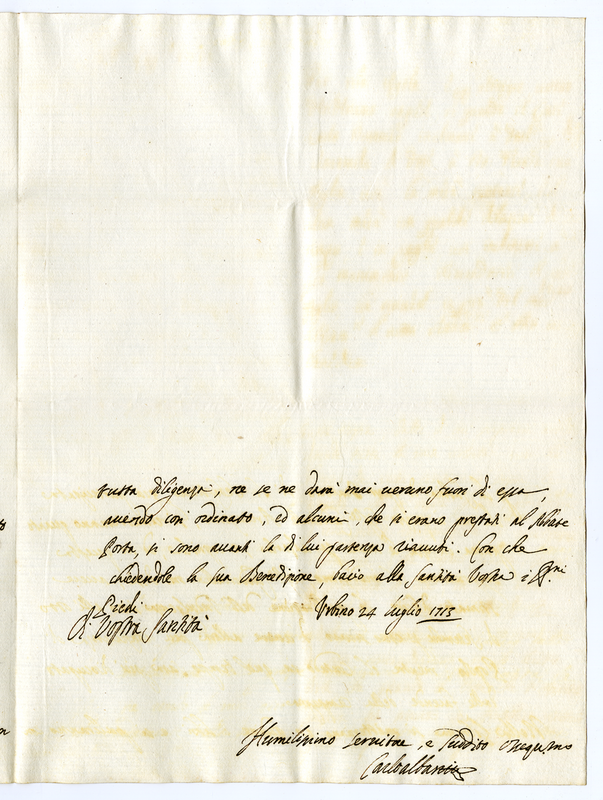 tutta diligenza, ne se ne darà mai veruno fuori di essa,
avendo così ordinato, ed alcuni, che si erano prestati al Abbate
Porta, si sono avanti la di lui partenza riavuti. Con che
chiedendole la sua Benedizione, bacio alla Santità Vostra i SSmi
Piedi Urbino 24 luglio 1713
Di Vostra Santità
Humilissimo servitore, e suddito ossequmo
Carlo Albani